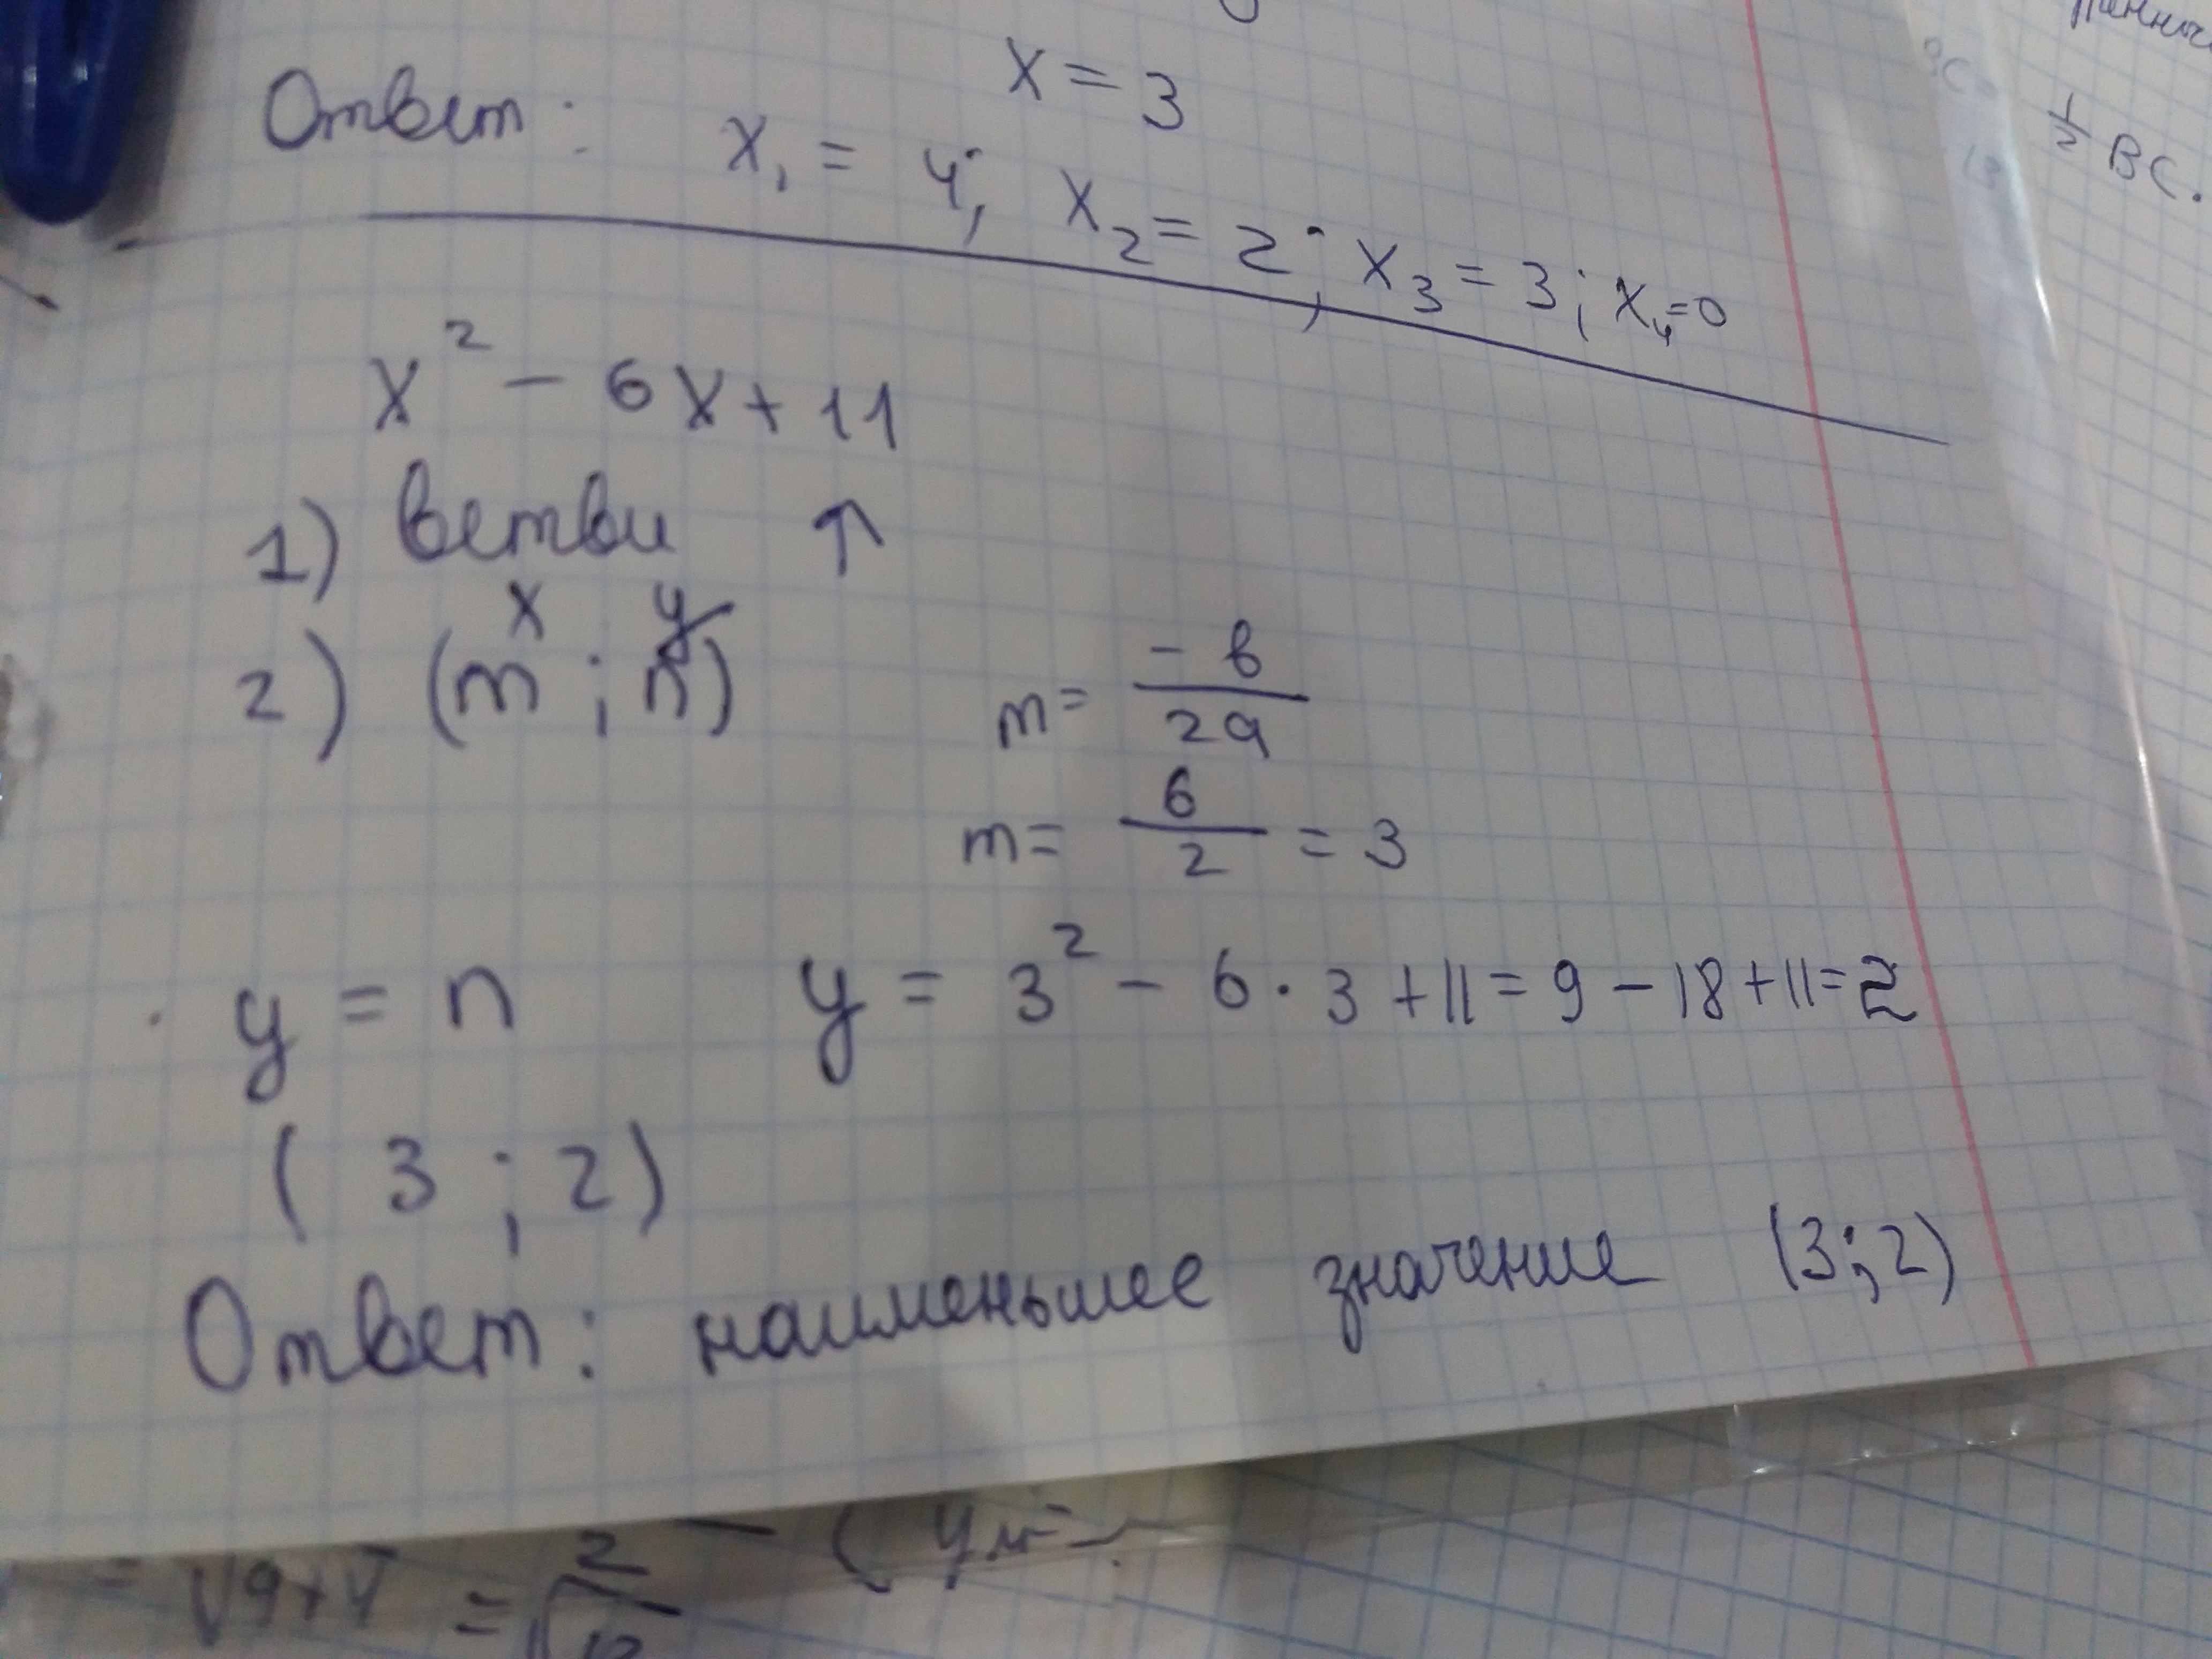 x = 3
Ответ: x₁ = 4; x₂ = 2; x₃ = 3; x₄=0
x² - 6x + 11
1) ветви ↑
x y
2) (m ; n) m = -b/2a
m = 6/2 = 3
y = n y = 3² - 6 · 3 + 11 = 9 - 18 + 11 = 2
( 3 ; 2)
Ответ: наименьшее значение (3; 2)
1/2 BC.
= √9+4 = 2